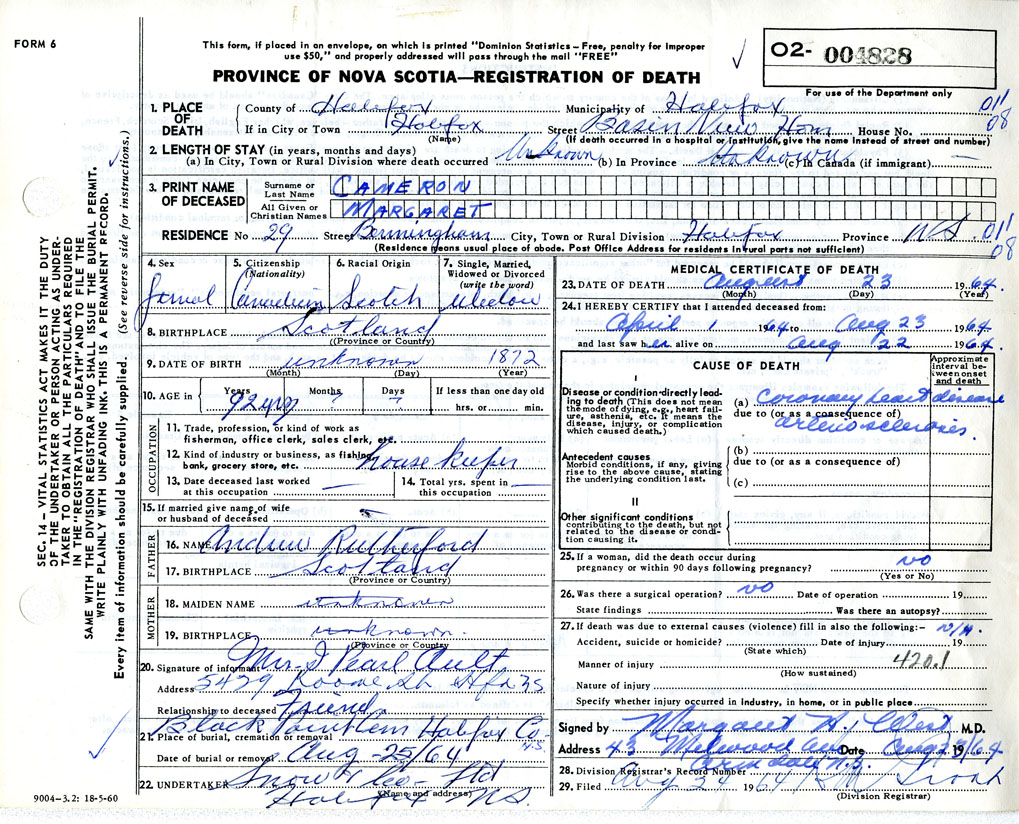 FORM 6
This form, if placed in an envelope, on which is printed "Dominion Statistics – Free, penalty for improper
use $50," and properly addressed will pass through the mail "FREE"
PROVINCE OF NOVA SCOTIA—REGISTRATION OF DEATH
O2- 004828
For use of the Department only
SEC. 14 – VITAL STATISTICS ACT MAKES IT THE DUTY
OF THE UNDERTAKER OR PERSON ACTING AS UNDER-
TAKER TO OBTAIN ALL THE PARTICULARS REQUIRED
IN THE "REGISTRATION OF DEATH" AND TO FILE THE
SAME WITH THE DIVISION REGISTRAR WHO SHALL ISSUE THE BURIAL PERMIT.
WRITE PLAINLY WITH UNFADING INK. THIS IS A PERMANENT RECORD.
Every item of information should be carefully supplied. (See reverse side for instructions.)
1. PLACE OF DEATH County of Halifax Municipality of Halifax 011
If in City or Town Halifax (Name) Street Basin View Hom House No. 08
(If death occurred in a hospital or institution, give the name instead of street and number)
2. LENGTH OF STAY (in years, months and days)
(a) In City, Town or Rural Division where death occurred (b) In Province (c) In Canada (if immigrant) —
3. PRINT NAME OF DECEASED
Surname or Last Name CAMERON
All Given or Christian Names MARGARET
RESIDENCE No 29 Street Birmingham City, Town or Rural Division Halifax Province NS 011
(Residence means usual place of abode. Post Office Address for residents in rural parts not sufficient) 08
4. Sex Femal
5. Citizenship (Nationality) Canadian
6. Racial Origin Scotch
7. Single, Married, Widowed or Divorced (write the word) Widow
8. BIRTHPLACE Scotland
(Province or Country)
9. DATE OF BIRTH unknown 1872
(Month) (Day) (Year)
10. AGE in Years 92 Months ? Days ? If less than one day old hrs. or min.
OCCUPATION
11. Trade, profession, or kind of work as
fisherman, office clerk, sales clerk, etc.
12. Kind of industry or business, as fishing, house keeper
bank, grocery store, etc.
13. Date deceased last worked at this occupation —
14. Total yrs. spent in this occupation —
15. If married give name of wife
or husband of deceased
FATHER
16. NAME Andrew Rutherford
17. BIRTHPLACE Scotland
(Province or Country)
MOTHER
18. MAIDEN NAME unknown
19. BIRTHPLACE unknown
(Province or Country)
20. Signature of informant Mrs. I Pearl Ault
Address 5479 Hfx NS
Relationship to deceased Friend
21. Place of burial, cremation or removal Black Point Cem Halifax Co. N.S.
Date of burial or removal Aug - 25/64
22. UNDERTAKER Snow & Co – Ltd
Halifax NS.
(Name and address)
9004-3.2: 18-5-60
MEDICAL CERTIFICATE OF DEATH
23. DATE OF DEATH August 23 1964
(Month) (Day) (Year)
24. I HEREBY CERTIFY that I attended deceased from:
April 1 1964 to Aug 23 1964
and last saw her alive on Aug 22 1964
CAUSE OF DEATH
Approximate interval between onset and death
I
Disease or condition directly lead-
ing to death (This does not mean
the mode of dying, e.g., heart fail-
ure, asthenia, etc. It means the
disease, injury, or complication
which caused death.)
(a) Coronary heart disease
due to (or as a consequence of)
arterio sclerosis.
Antecedent causes
Morbid conditions, if any, giving
rise to the above cause, stating
the underlying condition last.
(b)
due to (or as a consequence of)
(c)
II
Other significant conditions
contributing to the death, but not
related to the disease or condi-
tion causing it.
25. If a woman, did the death occur during
pregnancy or within 90 days following pregnancy? no
(Yes or No)
26. Was there a surgical operation? no Date of operation 19
State findings Was there an autopsy?
27. If death was due to external causes (violence) fill in also the following:– N/A.
Accident, suicide or homicide? Date of injury 19
(State which)
Manner of injury 420.1
(How sustained)
Nature of injury
Specify whether injury occurred in industry, in home, or in public place.
Signed by Margaret H. M.D.
Address 43 Melwood Ave Date Aug 1964
Armdale N.S.
28. Division Registrar's Record Number
29. Filed Aug 24 1964
(Division Registrar)